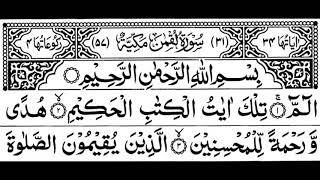 اٰيَاتُهَا ٣٤ (٣١) سُوْرَةُ لُقْمٰنَ مَكِّيَّةٌ (٥٧) رُكُوْعَاتُهَا ٤
بِسْمِ اللّٰهِ الرَّحْمٰنِ الرَّحِيْمِ
الٓمّٓ ۚ ١ تِلْكَ اٰيٰتُ الْكِتٰبِ الْحَكِيْمِ ۙ ٢ هُدًى
وَّ رَحْمَةً لِّلْمُحْسِنِيْنَ ۙ ٣ الَّذِيْنَ يُقِيْمُوْنَ الصَّلٰوةَ